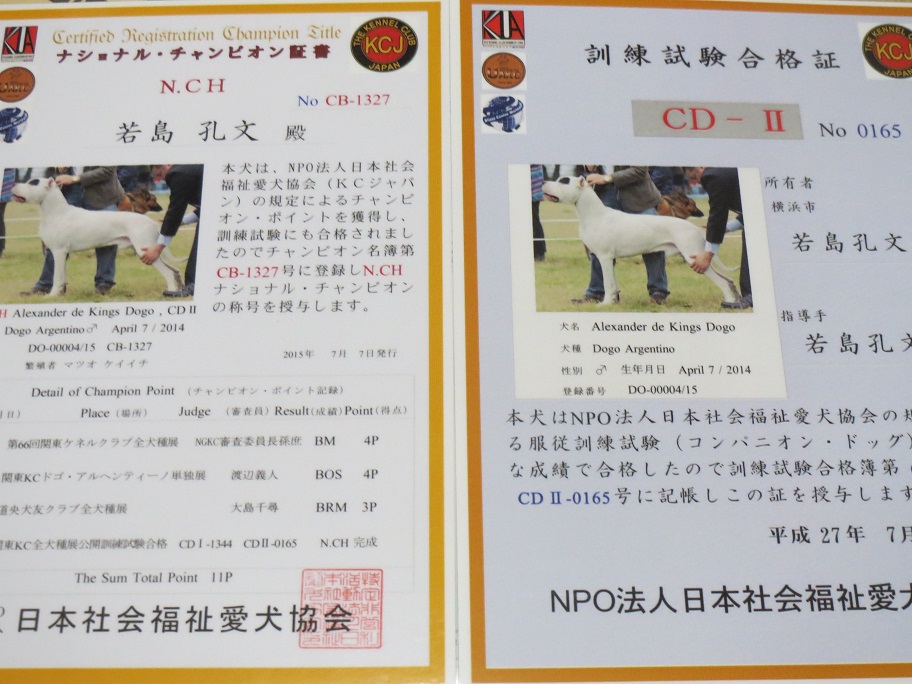 KIA
Certified Registration Champion Title
ナショナル・チャンピオン証書
THE KENNEL CLUB
KCJ
JAPAN
N.CH
No CB-1327
若島 孔文 殿
本犬は、NPO法人日本社会
福祉愛犬協会（KCジャパ
ン）の規定によるチャンピ
オン・ポイントを獲得し、
訓練試験にも合格されまし
たのでチャンピオン名簿第
CB-1327号に登録しN.CH
ナショナル・チャンピオン
の称号を授与します。
H Alexander de Kings Dogo , CDⅡ
Dogo Argentino♂ April 7 / 2014
DO-00004/15 CB-1327
繁殖者 マツオ ケイイチ
2015年 7月 7日発行
Detail of Champion Point （チャンピオン・ポイント記録）
月日） Place（場所） Judge （審査員） Result（成績） Point（得点）
第66回関東ケネルクラブ全犬種展 NGKC審査委員長孫庶 BM 4P
関東KCドゴ・アルヘンティーノ単独展 渡辺義人 BOS 4P
道央犬友クラブ全犬種展 大島千尋 BRM 3P
関東KC全犬種展公開訓練試験合格 CDⅠ-1344 CDⅡ-0165 N.CH 完成
The Sum Total Point 11P
日本社会福祉愛犬協会
訓練試験合格証
THE KENNEL
KCJ
JAPAN
CD－Ⅱ
No 0165
所有者
横浜市
若島孔文
指導手
若島孔文
犬名 Alexander de Kings Dogo
犬種 Dogo Argentino
性別 ♂ 生年月日 April 7 / 2014
登録番号 DO-00004/15
本犬はNPO法人日本社会福祉愛犬協会の規
る服従訓練試験（コンパニオン・ドッグ）
な成績で合格したので訓練試験合格簿第
CDⅡ-0165号に記帳しこの証を授与します
平成27年 7月
NPO法人日本社会福祉愛犬